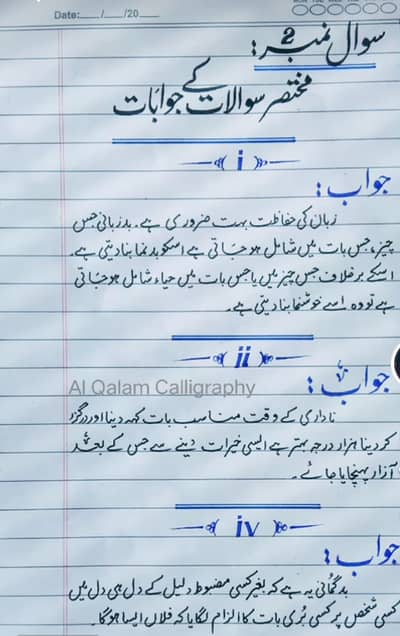 MON TUE WED THU FRI
Date:___/___/20___
سوال نمبر 2:
مختصر سوالات کے جوابات
i
جواب:
زبان کی حفاظت بہت ضروری ہے۔ بدزبانی جس
چیز، جس بات میں شامل ہو جاتی ہے اسکو بدنما بنا دیتی ہے۔
اسکے برخلاف جس چیز میں یا جس بات میں حیاء شامل ہو جاتی
ہے تو وہ اسے خوشنما بنا دیتی ہے۔
ii
Al Qalam Calligraphy
جواب:
ناداری کے وقت مناسب بات کہہ دینا اور درگزر
کر دینا ہزار درجہ بہتر ہے ایسی خیرات دینے سے جس کے بعد
آزار پہنچایا جائے۔
iv
جواب:
بدگمانی یہ ہے کہ بغیر کسی مضبوط دلیل کے دل ہی دل میں
کسی شخص پر کسی بُری بات کا الزام لگایا کہ فلاں ایسا ہوگا۔